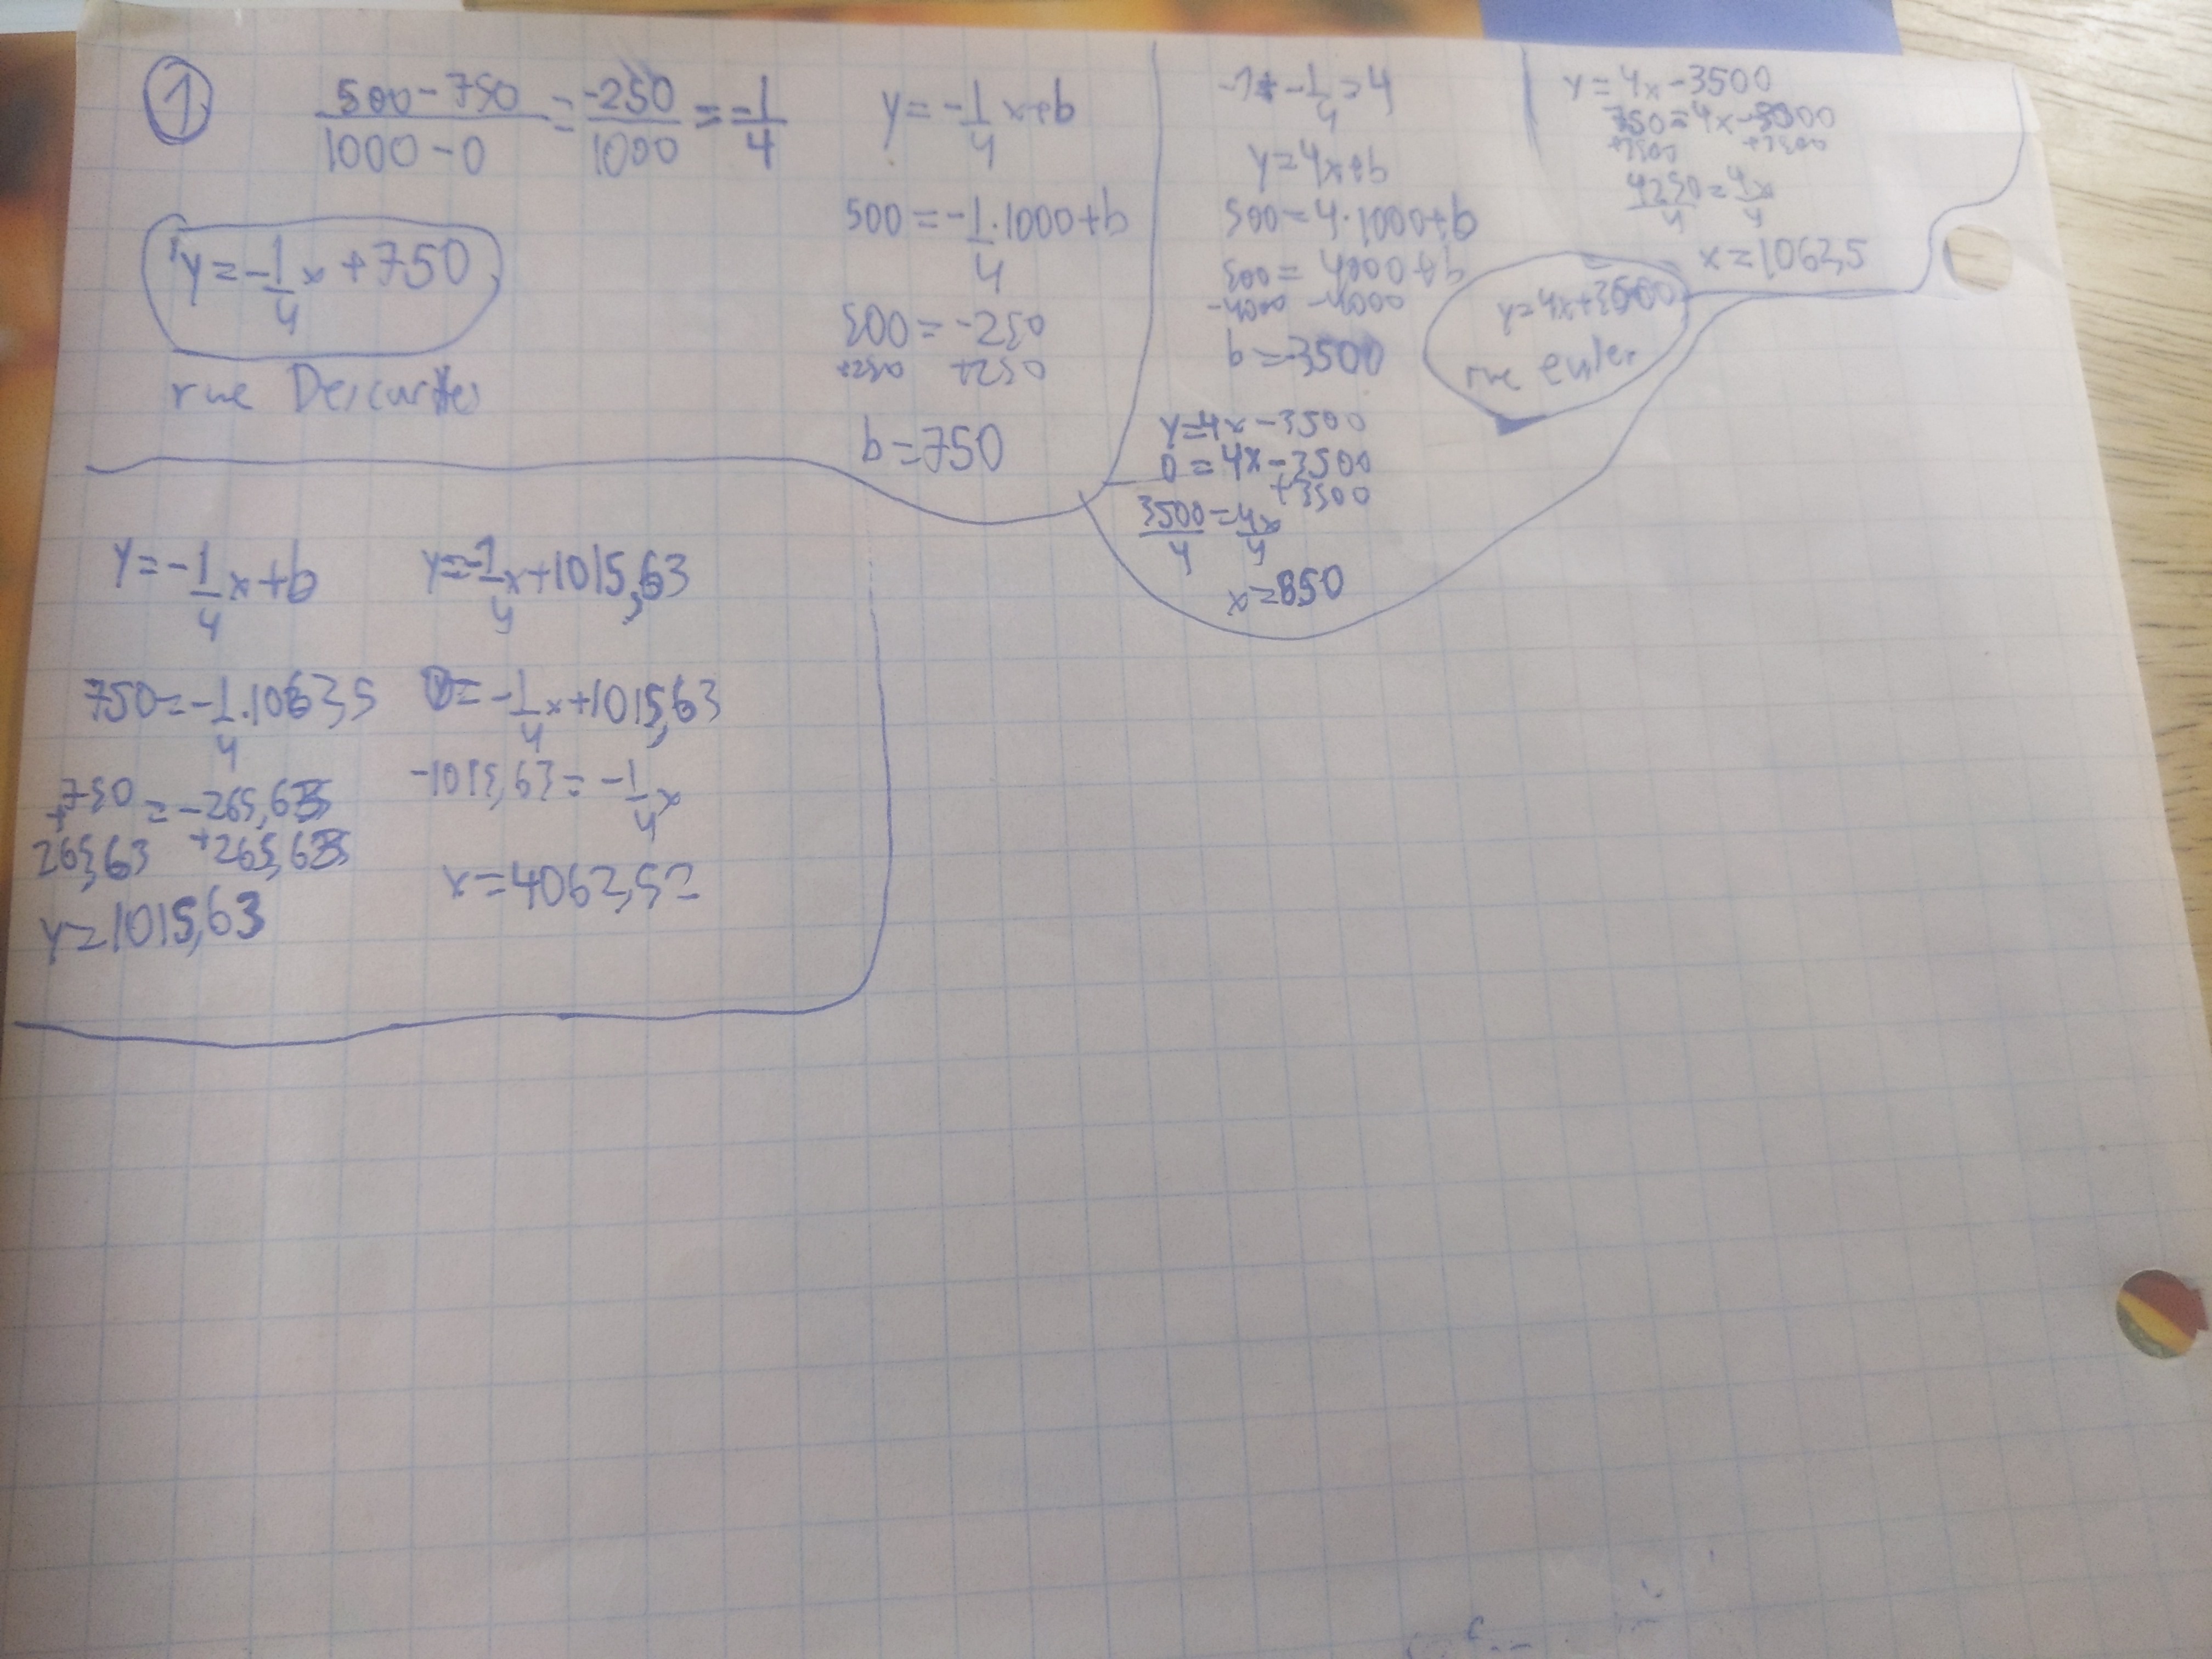 1
500-750 / 1000-0 = -250 / 1000 = -1/4
y=-1/4x+750
rue Descartes
y=-1/4x+b
500=-1/4·1000+b
500=-250
+250 +250
b=750
-1÷-1/4=4
y=4x+b
500=4·1000+b
500=4000+b
-4000 -4000
b=-3500
y=4x+3500
rue euler
y=4x-3500
0=4x-3500
+3500
3500/4=4x/4
x=850
y=4x-3500
750=4x-3500
+3500 +3500
4250/4=4x/4
x=1062,5
y=-1/4x+b
750=-1/4·1062,5
750=-265,63
+265,63 +265,63
y=1015,63
y=-1/4x+1015,63
0=-1/4x+1015,63
-1015,63=-1/4x
x=4062,52